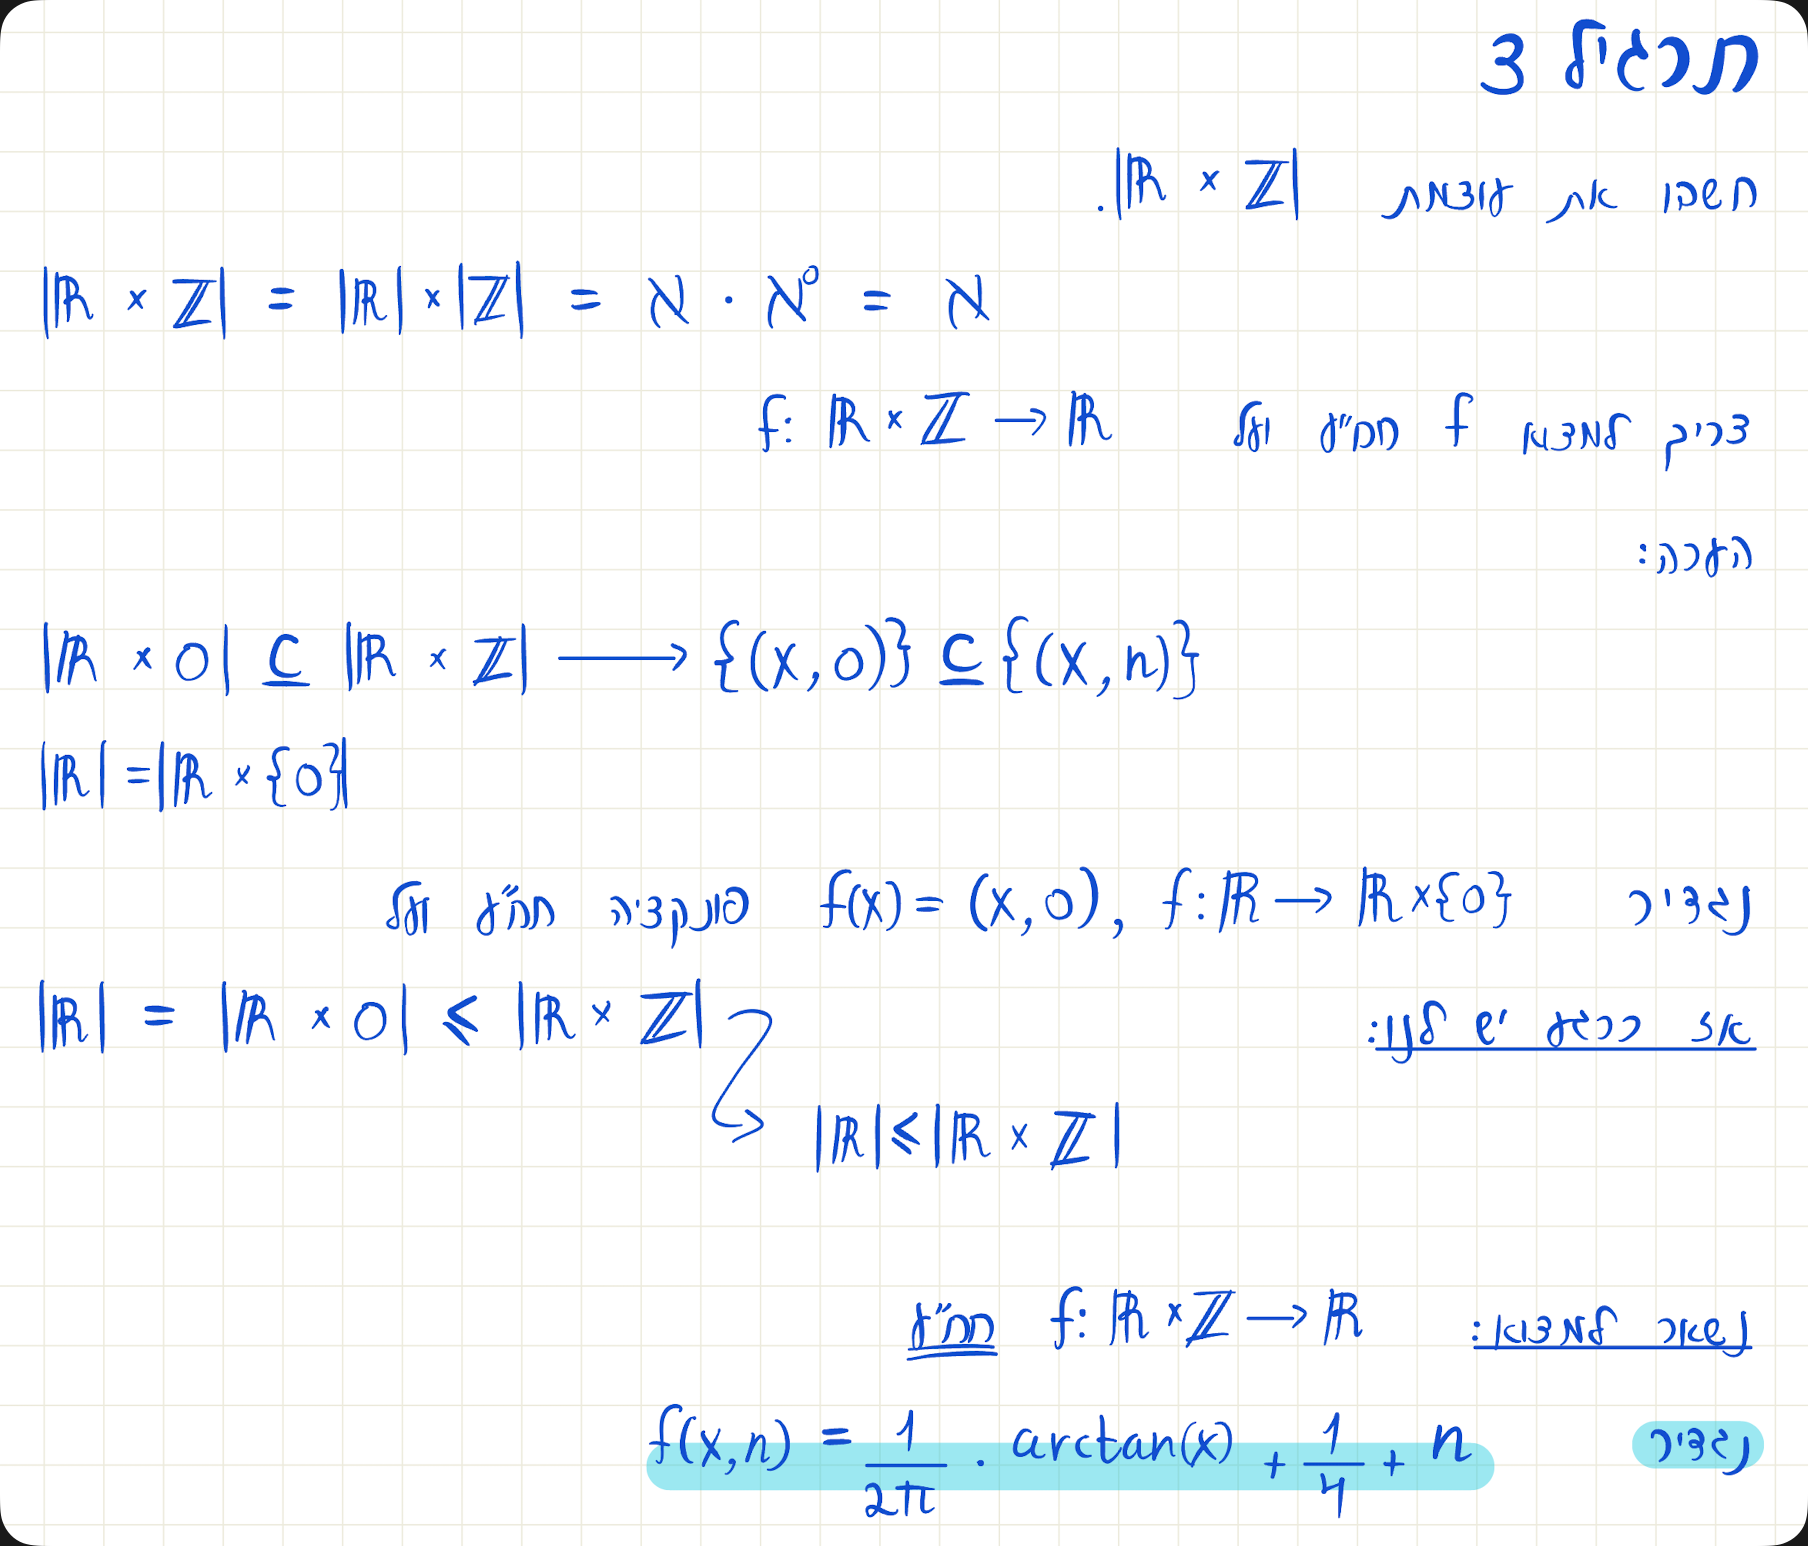 תרגיל 3
חשבו את עוצמת |ℝ × ℤ|.
|ℝ × ℤ| = |ℝ| × |ℤ| = א · א⁰ = א
צריך למצוא f חח"ע ועל f: ℝ × ℤ → ℝ
הערה:
|ℝ × 0| ⊆ |ℝ × ℤ| ⟶ {(x,0)} ⊆ {(x,n)}
|ℝ| = |ℝ × {0}|
נגדיר f: ℝ → ℝ × {0} , f(x) = (x,0) פונקציה חח"ע ועל
אז כרגע יש לנו: |ℝ| = |ℝ × 0| ≤ |ℝ × ℤ|
↪ |ℝ| ≤ |ℝ × ℤ|
נשאר למצוא: f: ℝ × ℤ → ℝ חח"ע
נגדיר f(x,n) = 1/2π · arctan(x) + 1/4 + n